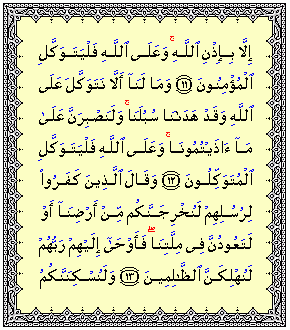 إِلَّا بِإِذْنِ ٱللَّهِ ۚ وَعَلَى ٱللَّهِ فَلْيَتَوَكَّلِ
ٱلْمُؤْمِنُونَ ﴿١١﴾ وَمَا لَنَآ أَلَّا نَتَوَكَّلَ عَلَى
ٱللَّهِ وَقَدْ هَدَىٰنَا سُبُلَنَا ۚ وَلَنَصْبِرَنَّ عَلَىٰ
مَآ ءَاذَيْتُمُونَا ۚ وَعَلَى ٱللَّهِ فَلْيَتَوَكَّلِ
ٱلْمُتَوَكِّلُونَ ﴿١٢﴾ وَقَالَ ٱلَّذِينَ كَفَرُوا۟
لِرُسُلِهِمْ لَنُخْرِجَنَّكُم مِّنْ أَرْضِنَآ أَوْ
لَتَعُودُنَّ فِى مِلَّتِنَا ۖ فَأَوْحَىٰٓ إِلَيْهِمْ رَبُّهُمْ
لَنُهْلِكَنَّ ٱلظَّٰلِمِينَ ﴿١٣﴾ وَلَنُسْكِنَنَّكُمُ